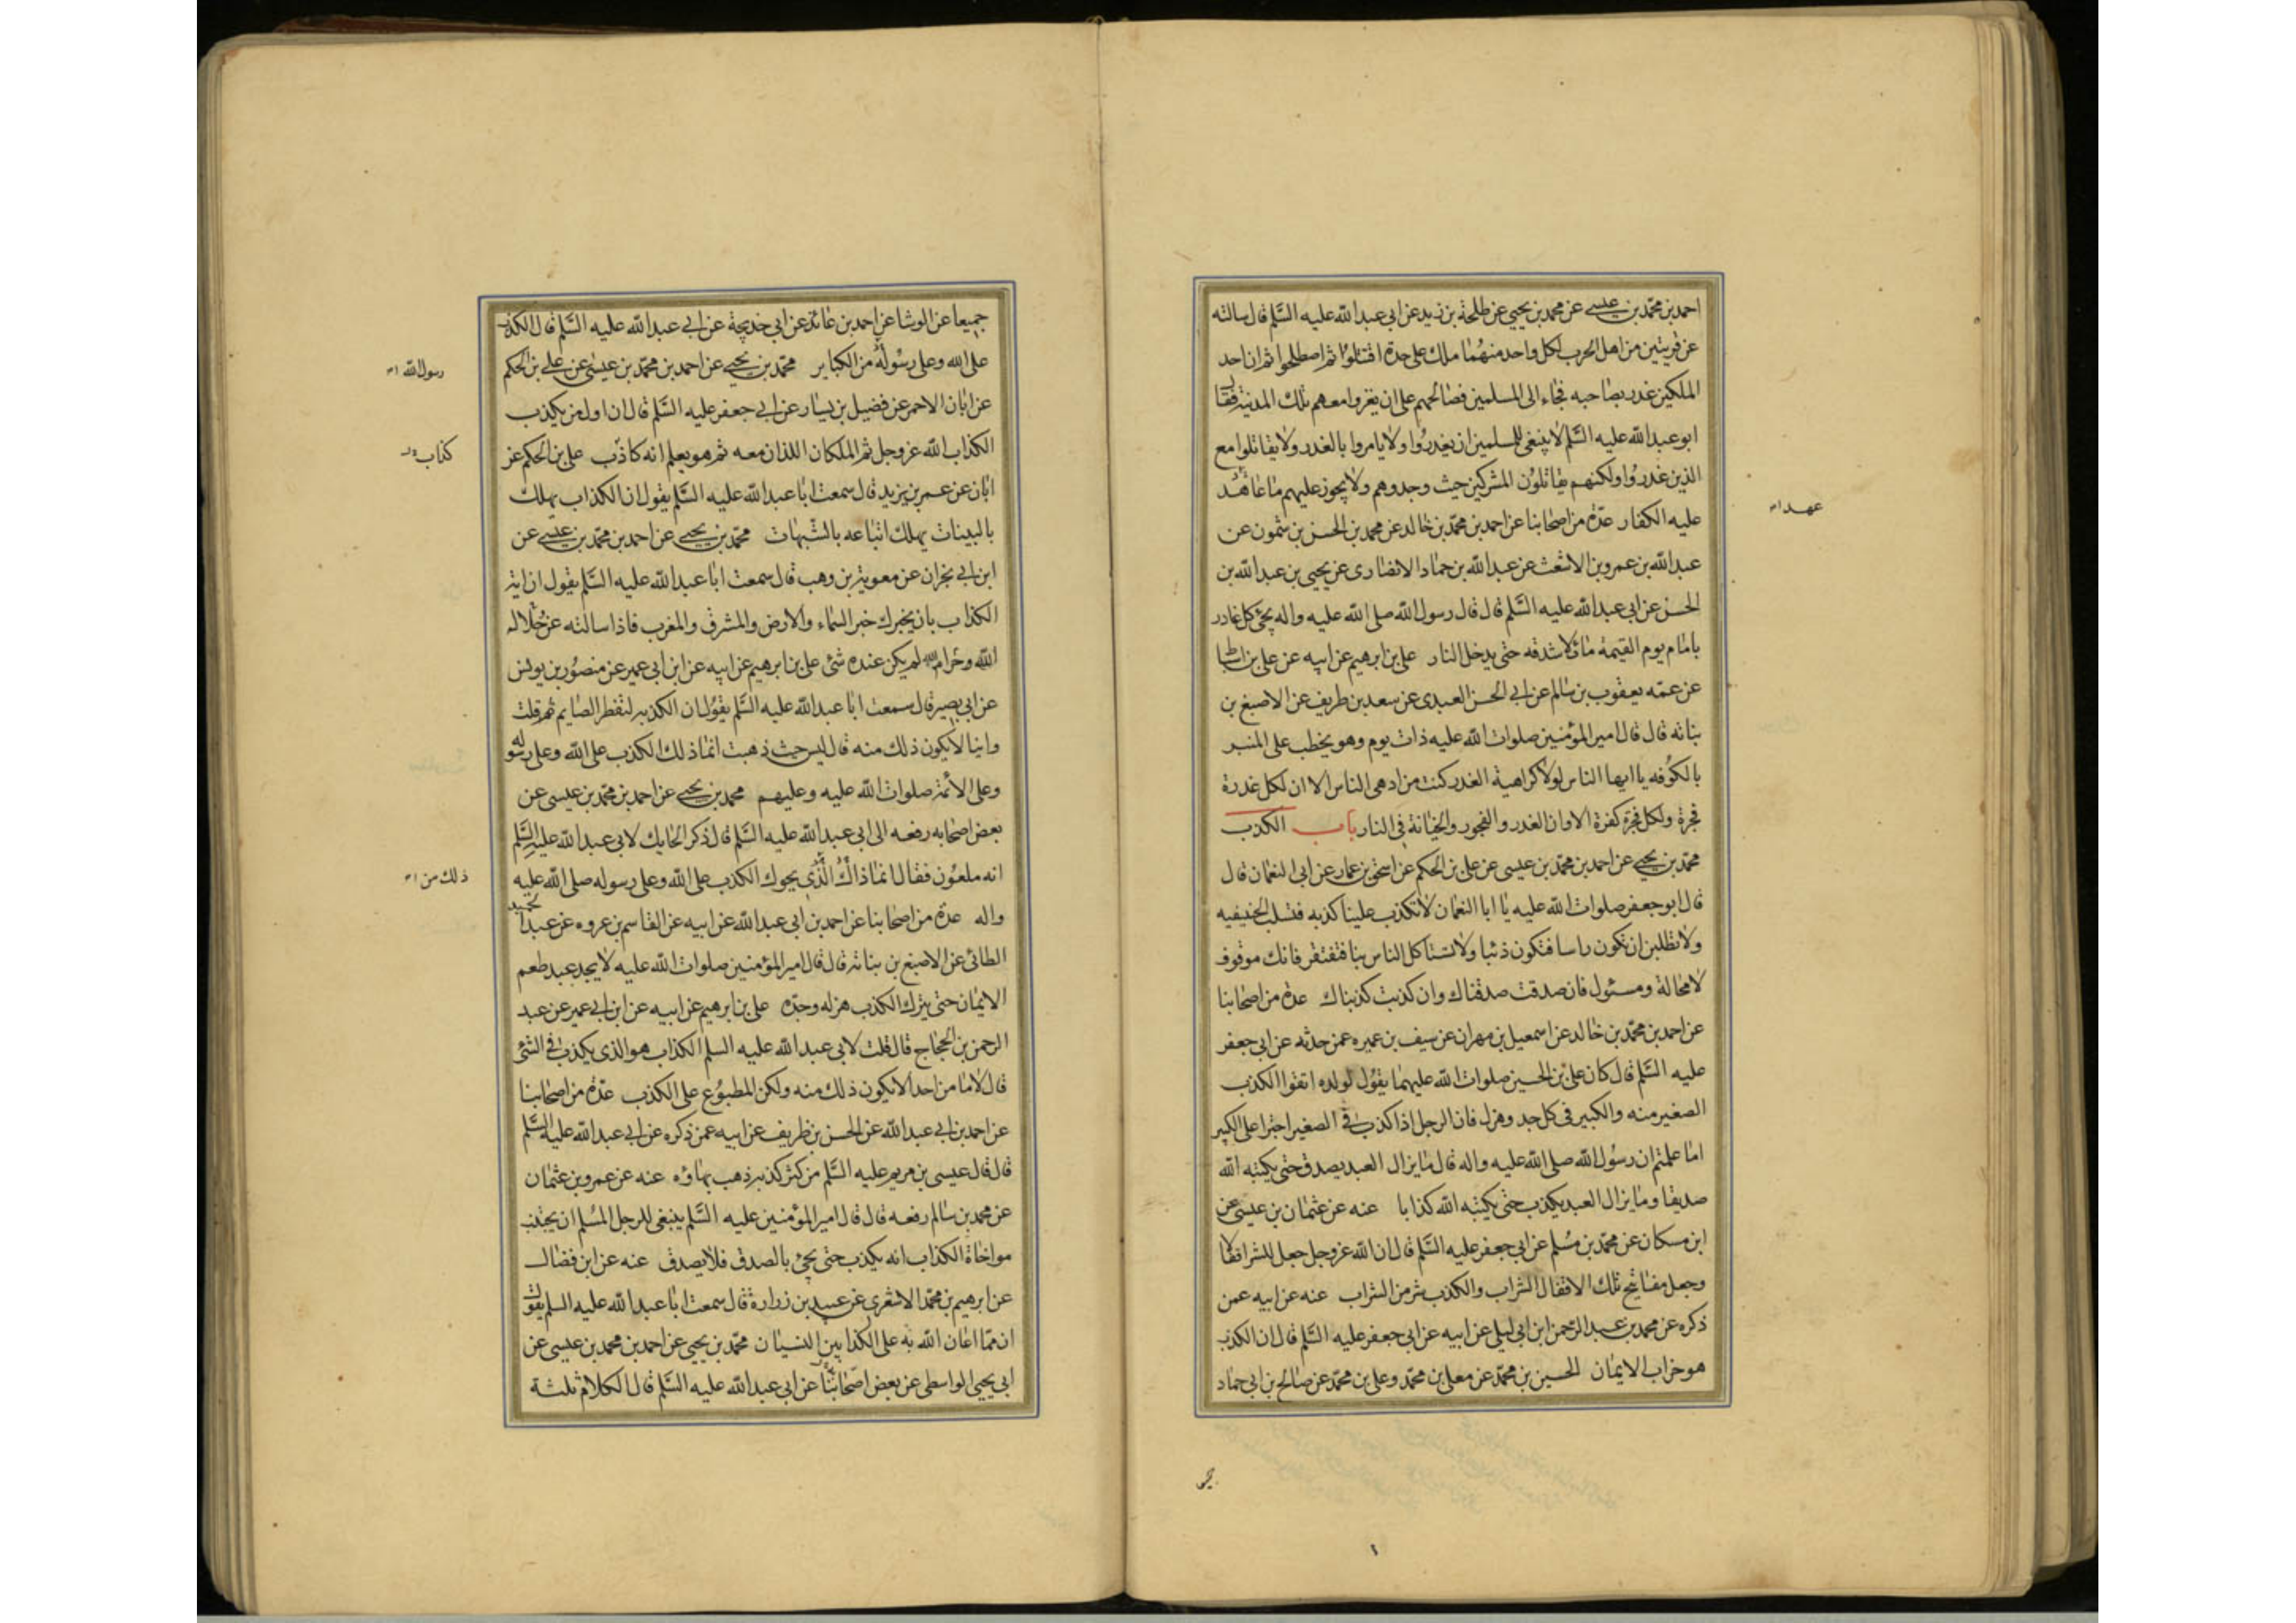 احمد بن محمّد بن عيسى عن محمد بن يحيى عن طلحة بن زيد عن ابى عبد الله عليه السّلم قال سالته
عن قريتين من اهل الحرب لكل واحد منهما ملك على حدة اقتتلوا ثم اصطلحوا ثم ان احد
الملكين غدر بصاحبه فجاء الى المسلمين فصالحهم على ان يغزوا معهم تلك المدينة فقال
ابو عبد الله عليه السّلم لا ينبغى للمسلمين ان يغدروا ولا يامروا بالغدر ولا يقاتلوا مع
الذين غدروا ولكنهم يقاتلون المشركين حيث وجدوهم ولا يجوز عليهم ما عاهد
عهد
عليه الكفار عدّة من اصحابنا عن احمد بن محمّد بن خالد عن محمد بن الحسن بن شمون عن
عبد الله بن عمرو بن الاشعث عن عبد الله بن حماد الانصارى عن يحيى بن عبد الله بن
الحسن عن ابى عبد الله عليه السّلم قال قال رسول الله صلى الله عليه واله يجئ كل غادر
بامام يوم القيمة مائلا شدقه حتى يدخل النار على بن ابرهيم عن ابيه عن على بن اسباط
عن عمّه يعقوب بن سالم عن ابى الحسن العبدى عن سعد بن طريف عن الاصبغ بن
نباته قال قال امير المؤمنين صلوات الله عليه ذات يوم وهو يخطب على المنبر
بالكوفه يا ايها الناس لولا كراهية الغدر كنت من ادهى الناس الا ان لكل غدرة
فجرة ولكل فجرة كفرة الا وان الغدر والفجور والخيانة فى النار باب الكذب
محمّد بن يحيى عن احمد بن محمّد بن عيسى عن على بن الحكم عن اسحق بن عمار عن ابى النعمان قال
قال ابو جعفر صلوات الله عليه يا ابا النعمان لا تكذب علينا كذبه فتسلب الحنيفيه
ولا تطلبن ان تكون راسا فتكون ذنبا ولا تستاكل الناس بنا فتفتقر فانك موقوف
لا محالة ومسئول فان صدقت صدقناك وان كذبت كذبناك عدة من اصحابنا
عن احمد بن محمّد بن خالد عن اسمعيل بن مهران عن سيف بن عميره عمن حدثه عن ابى جعفر
عليه السّلم قال كان على بن الحسين صلوات الله عليهما يقول لولده اتقوا الكذب
الصغير منه والكبير فى كل جد وهزل فان الرجل اذا كذب فى الصغير اجترا على الكبير
اما علمتم ان رسول الله صلى الله عليه واله قال ما يزال العبد يصدق حتى يكتبه الله
صديقا وما يزال العبد يكذب حتى يكتبه الله كذابا عنه عن عثمان بن عيسى عن
ابن مسكان عن محمّد بن مسلم عن ابى جعفر عليه السّلم قال ان الله عزوجل جعل للشر اقفالا
وجعل مفاتيح تلك الاقفال الشراب والكذب شر من الشراب عنه عن ابيه عمن
ذكره عن محمد بن عبد الرحمن ابن ابى ليلى عن ابيه عن ابى جعفر عليه السّلم قال ان الكذب
هو خراب الايمان الحسين بن محمّد عن معلى بن محمّد وعلى بن محمّد عن صالح بن ابى حماد
جميعا عن الوشا عن احمد بن عائذ عن ابى خديجة عن ابى عبد الله عليه السّلم قال الكذب
على الله وعلى رسوله من الكباير محمّد بن يحيى عن احمد بن محمّد بن عيسى عن على بن الحكم
رسول الله
عن ابان الاحمر عن فضيل بن يسار عن ابى جعفر عليه السّلم قال ان اول من يكذب
الكذاب الله عزوجل ثم الملكان اللذان معه ثم هو يعلم انه كاذب على بن الحكم عن
كذاب
ابان عن عمر بن يزيد قال سمعت ابا عبد الله عليه السّلم يقول ان الكذاب يهلك
بالبينات يهلك اتباعه بالشبهات محمّد بن يحيى عن احمد بن محمّد بن عيسى عن
ابن ابى نجران عن معوية بن وهب قال سمعت ابا عبد الله عليه السّلم يقول ان اية
الكذاب بان يخبرك خبر السماء والارض والمشرق والمغرب فاذا سالته عن حلال
الله وحرام الله لم يكن عنده شئ على بن ابرهيم عن ابيه عن ابن ابى عمير عن منصور بن يونس
عن ابى بصير قال سمعت ابا عبد الله عليه السّلم يقول ان الكذبه لتفطر الصايم ثم قلت
واينا لا يكون ذلك منه قال ليس حيث ذهبت انما ذلك الكذب على الله وعلى رسوله
وعلى الائمة صلوات الله عليه وعليهم محمد بن يحيى عن احمد بن محمّد بن عيسى عن
بعض اصحابه رفعه الى ابى عبد الله عليه السّلم قال ذكر الحايك لابى عبد الله عليه السّلم
انه ملعون فقال انما ذاك الّذى يحوك الكذب على الله وعلى رسوله صلى الله عليه
ذلك من
واله عدة من اصحابنا عن احمد بن ابى عبد الله عن ابيه عن القاسم بن عروه عن عبد الحميد
الطائى عن الاصبغ بن نباتة قال قال امير المؤمنين صلوات الله عليه لا يجد عبد طعم
الايمان حتى يترك الكذب هزله وجدّه على بن ابرهيم عن ابيه عن ابن ابى عمير عن عبد
الرحمن بن الحجاج قال قلت لابى عبد الله عليه السلم الكذاب هو الذى يكذب فى الشئ
قال لا ما من احد الا يكون ذلك منه ولكن المطبوع على الكذب عدّة من اصحابنا
عن احمد بن ابى عبد الله عن الحسن بن ظريف عن ابيه عمن ذكره عن ابى عبد الله عليه السّلم
قال قال عيسى بن مريم عليه السّلم من كثر كذبه ذهب بهاؤه عنه عن عمرو بن عثمان
عن محمد بن سالم رفعه قال قال امير المؤمنين عليه السّلم ينبغى للرجل المسلم ان يجتنب
مواخاة الكذاب انه يكذب حتى يجئ بالصدق فلا يصدق عنه عن ابن فضال
عن ابرهيم بن محمّد الاشعرى عن عبيد بن زرارة قال سمعت ابا عبد الله عليه السلم يقول
ان مما اعان الله به على الكذابين النسيان محمّد بن يحيى عن احمد بن محمد بن عيسى عن
ابى يحيى الواسطى عن بعض اصحابنا عن ابى عبد الله عليه السّلم قال الكلام ثلثة